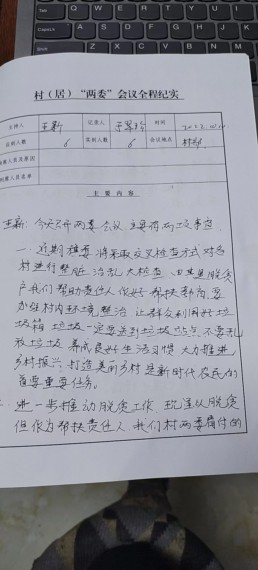 村（居）“两委”会议全程纪实
主持人 王新 记录人 时间 2022.10.
应到人数 6 实到人数 6 会议地点 村部
缺席人员及原因
列席人员名单
主要内容
王新：今天召开两委会议，主要有两项事宜
一、近期镇要将采取交叉检查方式对各
村进行整脏治乱大检查，尤其是脱贫
户我们帮助责任人做好帮扶，要
加强村内环境整治，让群众利用好垃
圾箱，垃圾一定要送到垃圾站点，不要乱
放垃圾，养成良好生活习惯，大力推进
乡村振兴，打造美丽乡村是新时代农民的
首要重要任务。
二、进一步推动脱贫工作，现虽以脱贫
但作为帮扶责任人，我们村两委肩付的